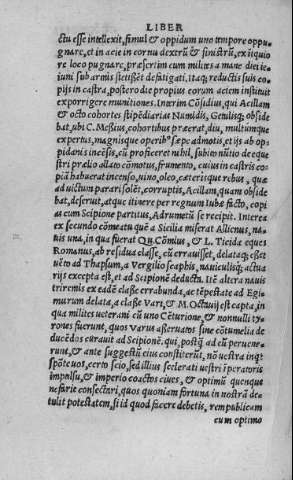 LIBER
ctu esse intellexit, simul & oppidum uno tempore oppu-
gnare, et in acie in cornu dextrũ & sinistrũ, ex iniquio
re loco pugnare, præsertim cum milites a mane diei ie-
iuni sub armis stetissẽt defatigati, itaq; reductis suis co-
pijs in castra, postero die propius eorum aciem instituit
exporrigere munitiones. Interim Cõsidius, qui Acillam
& octo cohortes stipẽdiarias Numidis, Getulisq; obside
bat, ubi C. Messius, cohortibus præerat, diu, multumque
expertus, magnisque operib⁹ sæpe admotis, et ijs ab op-
pidanis incẽsis, cũ proficeret nihil, subito nũcio de eque
stri prælio allato cõmotus, frumento, cuius in castris co-
piã habuerat incenso, uino, oleo, cæterisque rebus, quæ
ad uictum parari solẽt, corruptis, Acillam, quam obside
bat, deseruit, atque itinere per regnum Iubæ facto, copi
as cum Scipione partitus, Adrumetũ se recipit. Interea
ex secundo cõmeatu quẽ a Sicilia miserat Allienus, na-
uis una, in qua fuerat Qu. Cõmius, & L. Ticida eques
Romanus, ab residua classe, cũ errauisset, delataq; esset
uẽto ad Thapsum, a Vergilio scaphis, nauiculisq; actua
rijs excepta est, et ad Scipionẽ deducta. Itẽ altera nauis
triremis ex eadẽ classe errabunda, ac tẽpestate ad Egi-
murum delata, a classe Vari, & M. Octauij est capta, in
qua milites ueterani cũ uno Cẽturione, & nonnulli ty
rones fuerunt, quos Varus asseruatos sine cõtumelia de
ducẽdos curauit ad Scipionẽ, qui, postq̃ ad eũ peruene-
runt, & ante suggestũ eius constiterũt, nõ uestra inq̃t
spõte uos, certo scio, sed illius scelerati uestri ĩperatoris
impulsu, & imperio coactos ciues, & optimũ quenque
nefarie consectari, quos quoniam fortuna in nostrã de-
tulit potestatem, si id quod facere debetis, rempublicam
cum optimo